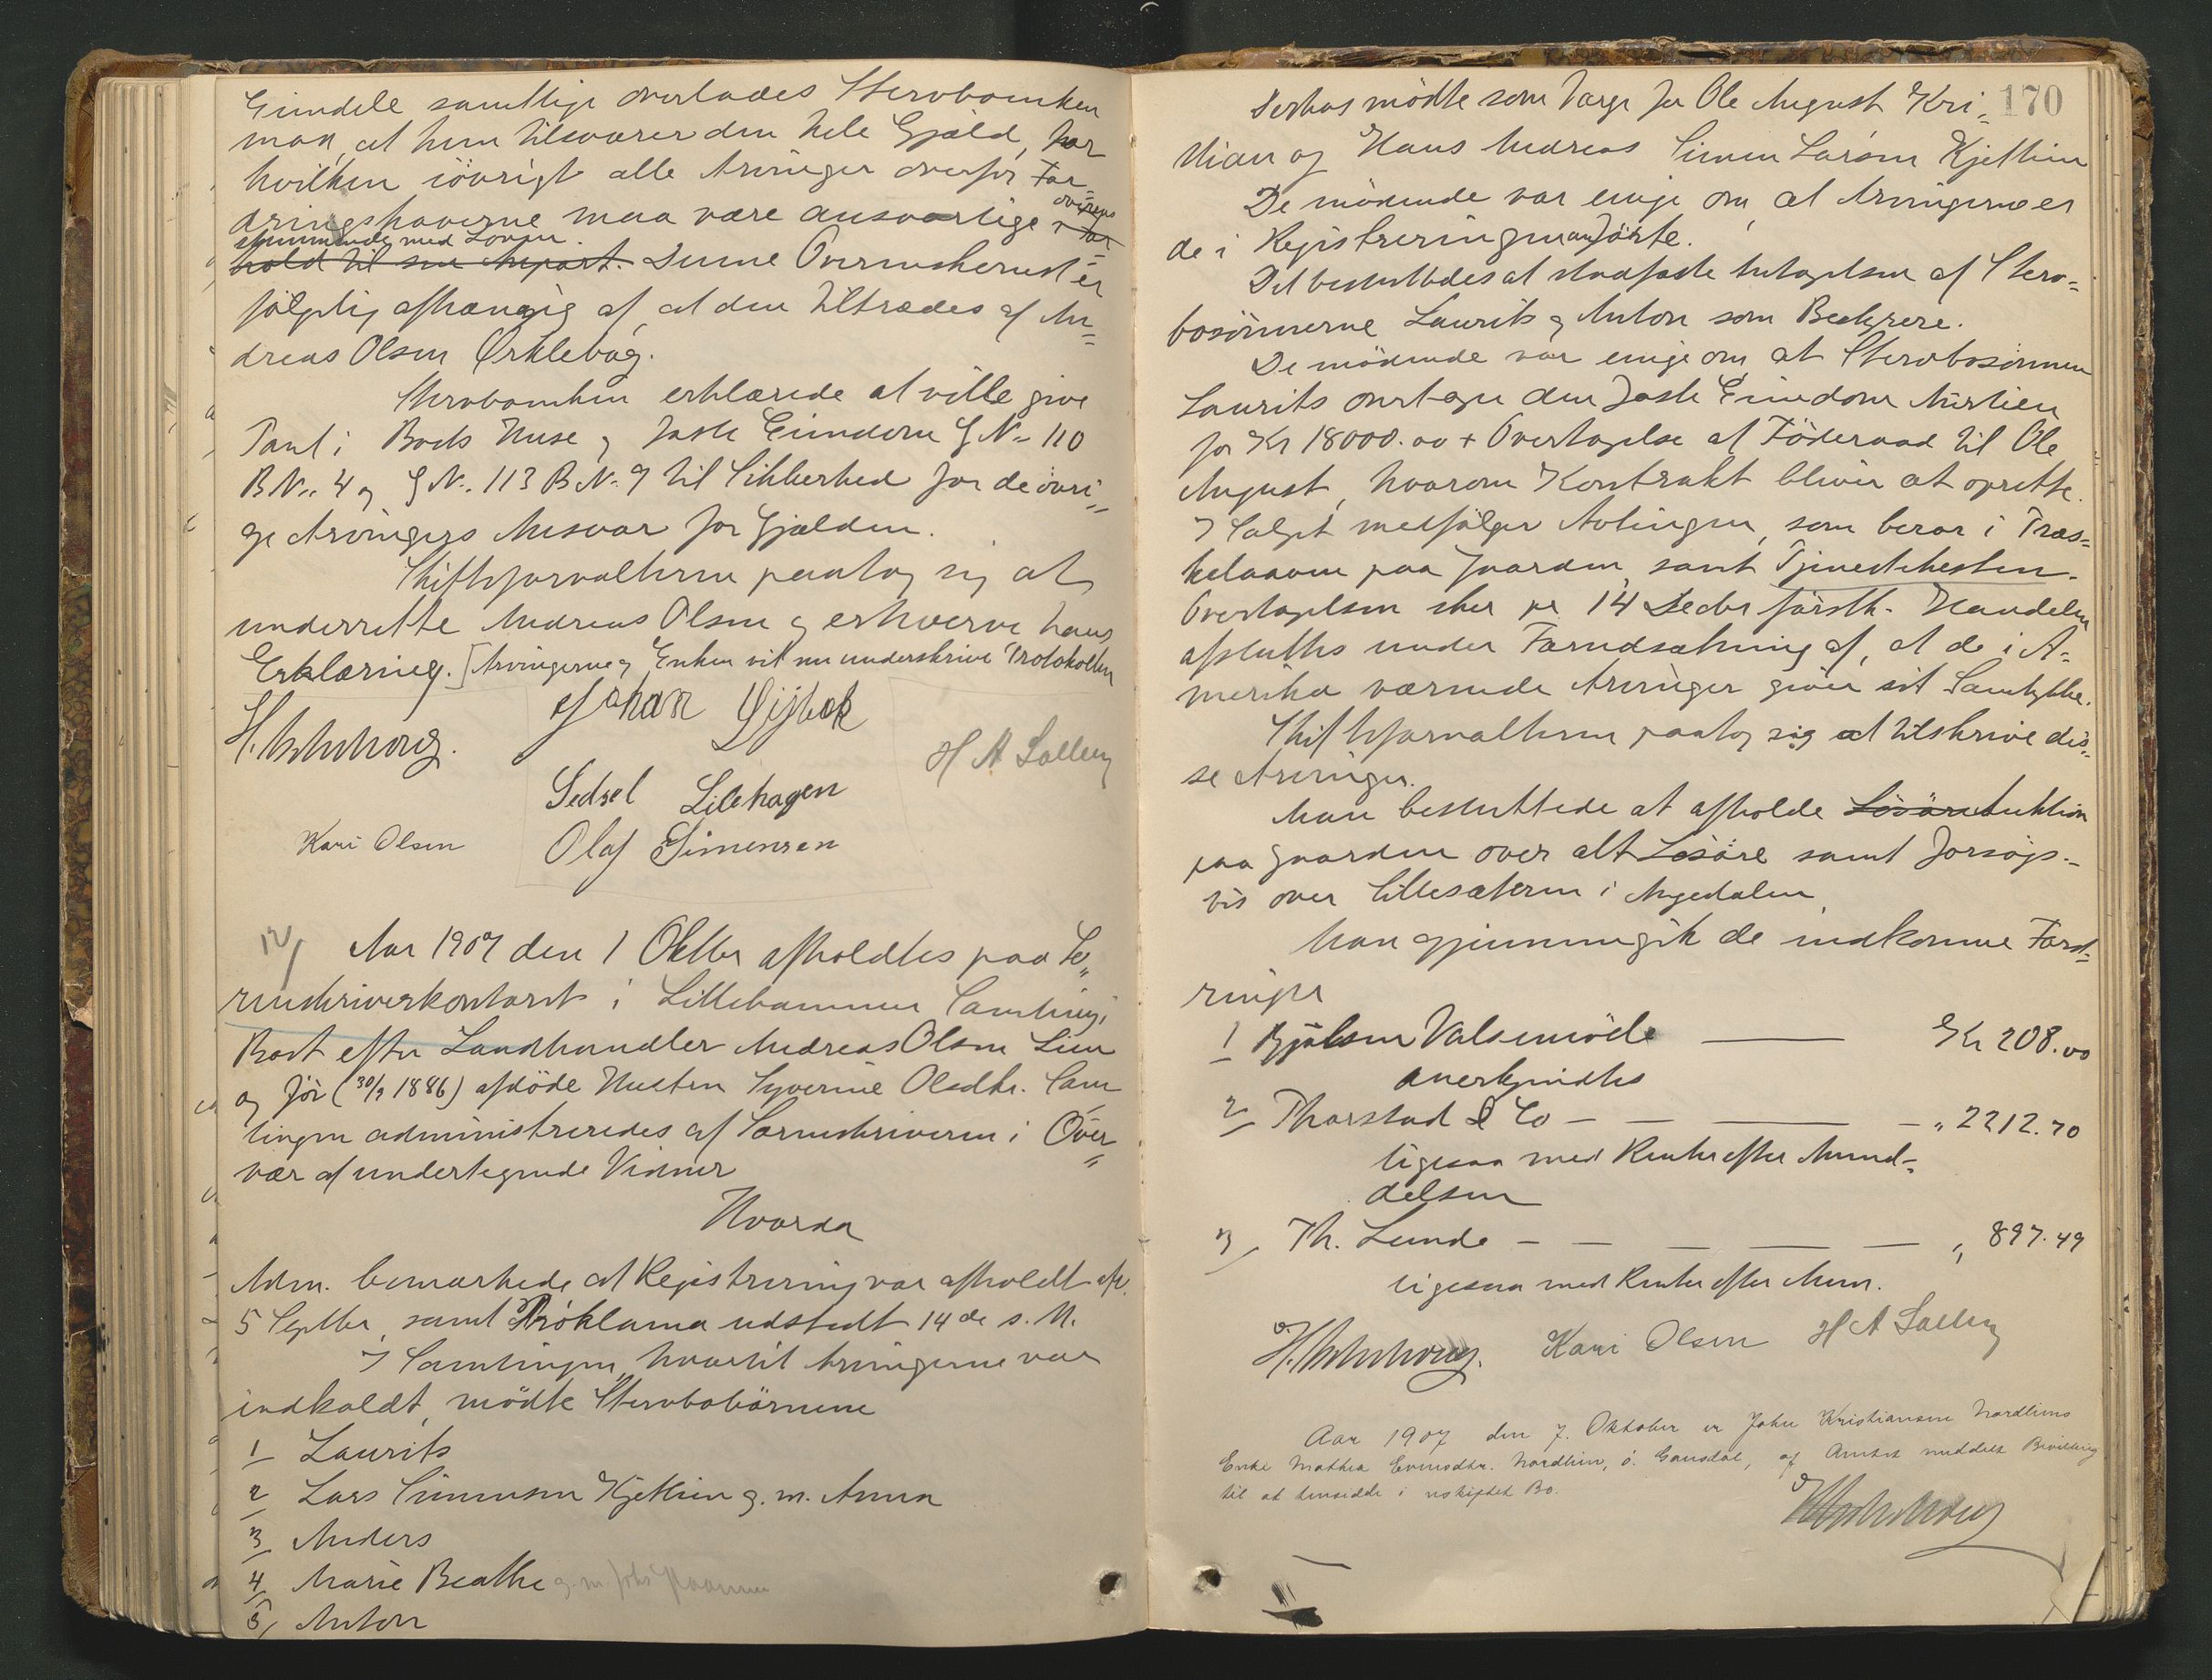 Eiendele samtlige overlades Stervboenken
mod, at hun tilsvarer den hele Gjæld, for
hvilken iøvrigt alle Arvinger overfor For-
dringshaverne maa være ansvarlige overens-
stemmende med Loven.
hold til sin Arvepart. Denne Overenskomst er
følgelig afhængig af at den tiltrædes af An-
dreas Olsen Ørklebøg.
Stervboenken erklærede at ville give
Pant i Boets Huse og faste Eiendom G N. 110
B N. 4 og G N. 113 B N. 9 til Sikkerhed for de øvri-
ge Arvingers Ansvar for Gjælden.
Skifteforvalteren paatog sig at
underrette Andreas Olsen og erhverve hans
Erklæring. [Arvingerne og Enken vil nu underskrive Protokollen
Johan
H A
Sedsel Lilehagen
Kari Olsen Olaf Simensen
12/ Aar 1907 den 1 Oktbr afholdtes paa So-
renskriverkontoret i Lillehammer Samling i
Boet efter Landhandler Andreas Olsen Lien
og før (30/9 1886) afdøde Hustru Syverine Olsdtr. Sam
lingen administreredes af Sorenskriveren i Over-
vær af undertegnede Vidner
Hvorda
Adm. bemærkede at Registrering var afholdt
5 Septbr, samt Proklama udstedt 14de s. M.
I Samlingen, hvortil Arvingerne var
indkaldt, mødte Stervbobørnene
1 Laurits
2 Lars Simensen Kjetlien g. m. Anna
3 Anders
4 Marie Beathe g. m. Johs
5, Anton
170
Derhos mødte som Værge for Ole August Kri-
stian og Hans Andreas Simen Larsen Kjetlien
De mødende var enige om, at Arvingerne er
de i Registreringen anførte.
Det besluttedes at stadfæste Antagelsen af Sterv-
bosønnerne Laurits og Anton som Bestyrere.
De mødende var enige om at Stervbosønnen
Laurits overtager den faste Eiendom
for Kr 18000.00 + Overtagelse af Föderaad til Ole
August, hvorom Kontrakt bliver at oprette.
I Salget medfølger Avlingen, som beror i Træs-
kelaaven paa Gaarden, samt Tjenestehesten.
Overtagelsen sker pr 14 Decbr førstk. Handelen
afsluttes under Forudsætning af, at de i A-
merika værende Arvinger giver sit Samtykke.
Skifteforvalteren paatog sig at tilskrive dis-
se Arvinger.
Man besluttede at afholde Løsøre Auktion
paa Gaarden over alt Løsøre samt forsøgs-
vis over Lillesæteren i
Man gjennemgik de indkomne Ford-
ringer
1 Valsemølle — Kr 208.00
anerkjendtes
2 Thorstad & Co — — — — „ 2212.70
ligesaa med Renter efter Anmel-
delsen
3, Th. Lunde — — — — — „ 897.49
ligesaa med Renter efter Anm.
Kari Olsen H A
Aar 1907 den 7. Oktober er John Kristiansen Nordliens
Enke Mathea Evensdtr. Nordlien, ö. Gausdal, af Amtet meddelt Bevilling
til at hensidde i uskiftet Bo.